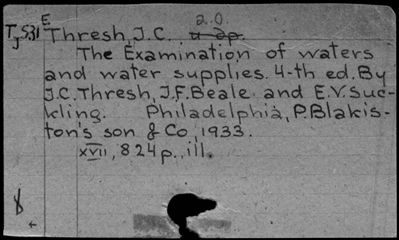 E 2.0.
TJ531 Thresh, J.C. и др.
The Examination of waters
and water supplies. 4-th ed. By
J.C. Thresh, J.F. Beale and E.V. Suc-
kling. Philadelphia, P. Blakis-
ton's son & Co, 1933.
XVII, 824 p., ill.